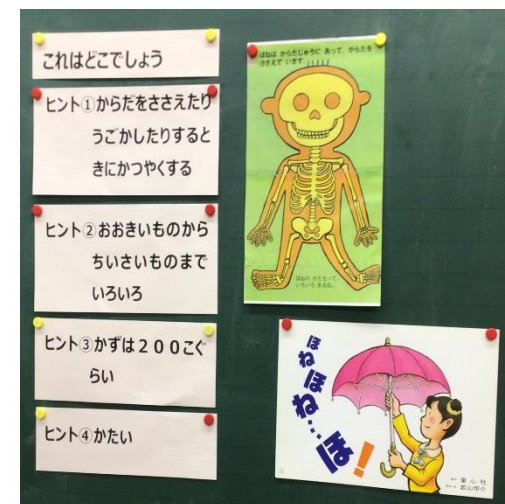 これはどこでしょう
ヒント①からだをささえたり
うごかしたりすると
きにかつやくする
ヒント②おおきいものから
ちいさいものまで
いろいろ
ヒント③かずは200こぐ
らい
ヒント④かたい
ほねは からだじゅうに あって、からだを
ささえて います。
ほねの かたちって、
いろいろ あるね。
ほねほねね…ほ!
童心社
若山甲介